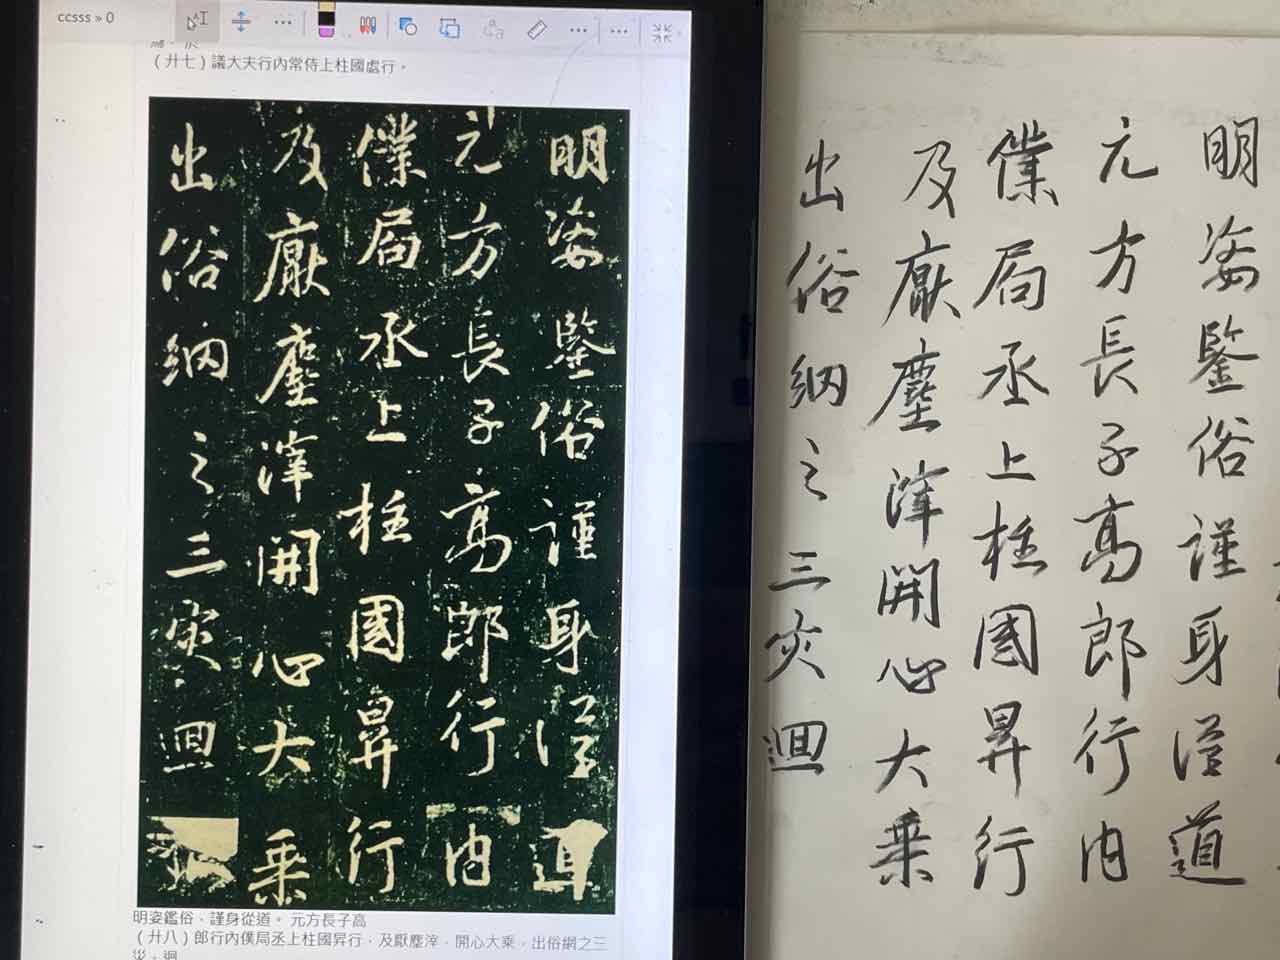 ccsss » 0
（廾七）議大夫行內常侍上柱國處行。
明姿鑒俗謹身從道
元方長子高郎行内
僕局丞上柱國昇行
及厭塵滓開心大乗
出俗納之三災迴
明姿鑑俗、謹身從道。 元方長子高
（廾八）郎行內僕局丞上柱國昇行，及厭塵滓，開心大乘，出俗網之三
災，迴
明姿鑒俗謹身從道
元方長子高郎行内
僕局丞上柱國昇行
及厭塵滓開心大乗
出俗納之三災迴